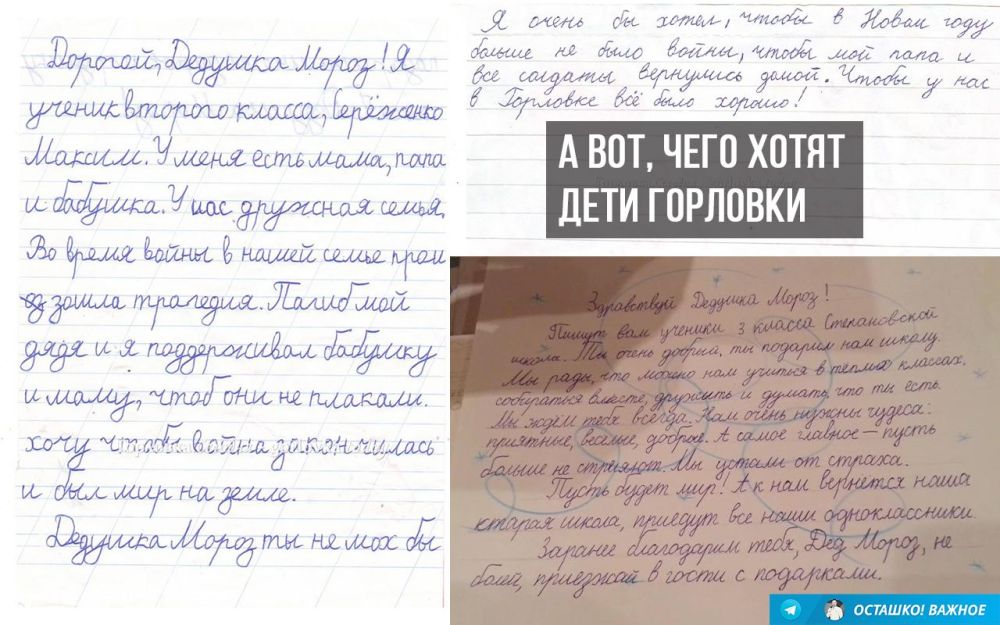 Дорогой, Дедушка Мороз! Я
ученик второго класса, Серёженко
Максим. У меня есть мама, папа
и бабушка. У нас дружная семья.
Во время войны в нашей семье прои
зошла трагедия. Пагиб мой
дядя и я поддерживал бабушку
и маму, чтоб они не плакали.
хочу чтобы война закончилась
и был мир на земле.
Дедушка Мороз ты не мох бы
Я очень бы хотел, чтобы в Новом году
больше не было войны, чтобы мой папа и
все солдаты вернулись домой. Чтобы у нас
в Горловке всё было хорошо!
А ВОТ, ЧЕГО ХОТЯТ
ДЕТИ ГОРЛОВКИ
Здравствуй Дедушка Мороз!
Пишут вам ученики 3 класса Степановской
школа. Ты очень добрый, ты подарил нам школу.
Мы рады, что можно нам учиться в теплых классах,
собираться вместе, дружить и думать, что ты есть.
Мы ждём тебя всегда. Нам очень нужны чудеса:
приятные, весёлые, добрые. А самое главное – пусть
больше не стреляют. Мы устали от страха.
Пусть будет мир! А к нам вернется наша
старая школа, приедут все наши одноклассники.
Заранее благодарим тебя, Дед Мороз, не
болей, приезжай в гости с подарками.
ОСТАШКО! ВАЖНОЕ